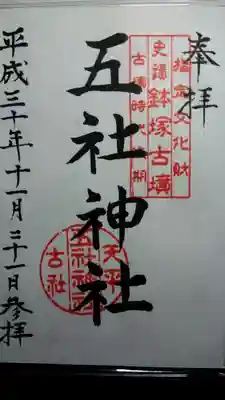 奉拝
指定文化財
史蹟 鉢塚古墳
古墳時代後期
五社神社
天平
五社神社
古社
平成三十年十一月二十一日参拝